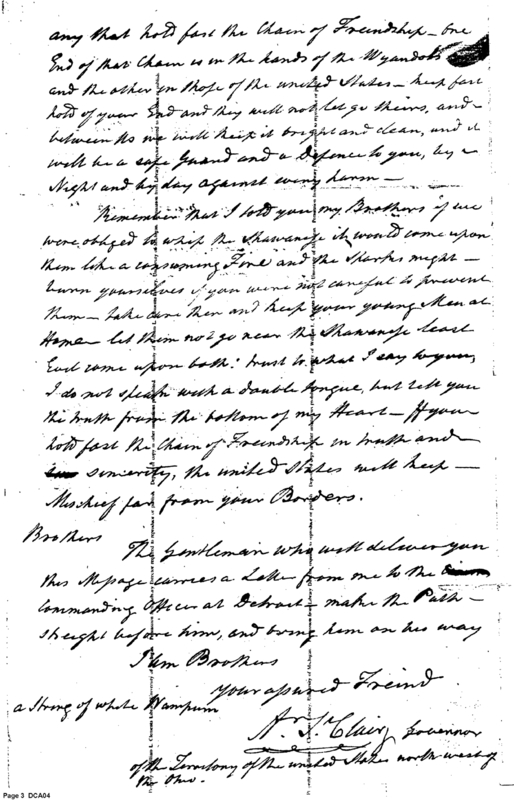 any that hold fast the Chain of Freindship – One
End of that Chain is in the hands of the Wyandots
and the other in those of the united States – keep fast
hold of your End and they will not let go theirs, and –
between us we will keep it bright and clean, and it
will be a safe Guard and a Defence to you, by –
Night and by day against every harm –
Remember that I told you my Brothers if we
were obliged to whip the Shawanese it would come upon
them like a consuming Fire and the Sparks might –
burn yourselves if you were not careful to prevent
them – take care then and keep your young Men at
Home – let them not go near the Shawanese least
Evil come upon both: trust to what I say to you,
I do not speak with a double tongue, but tell you
the truth from the bottom of my Heart – If you
hold fast the Chain of Freindship in truth and –
sincerity, the united States will keep –
Mischief far from your Borders.
Brothers
The Gentleman who will deliver you
this Message carries a Letter from me to the
Commanding Officer at Detroit – make the Path –
streight before him, and bring him on his way
I am Brothers
your assured Freind
a String of white Wampum
Ar. St. Clair Governor
of the Territory of the united States north west of
the Ohio.
Page 3 DCA04